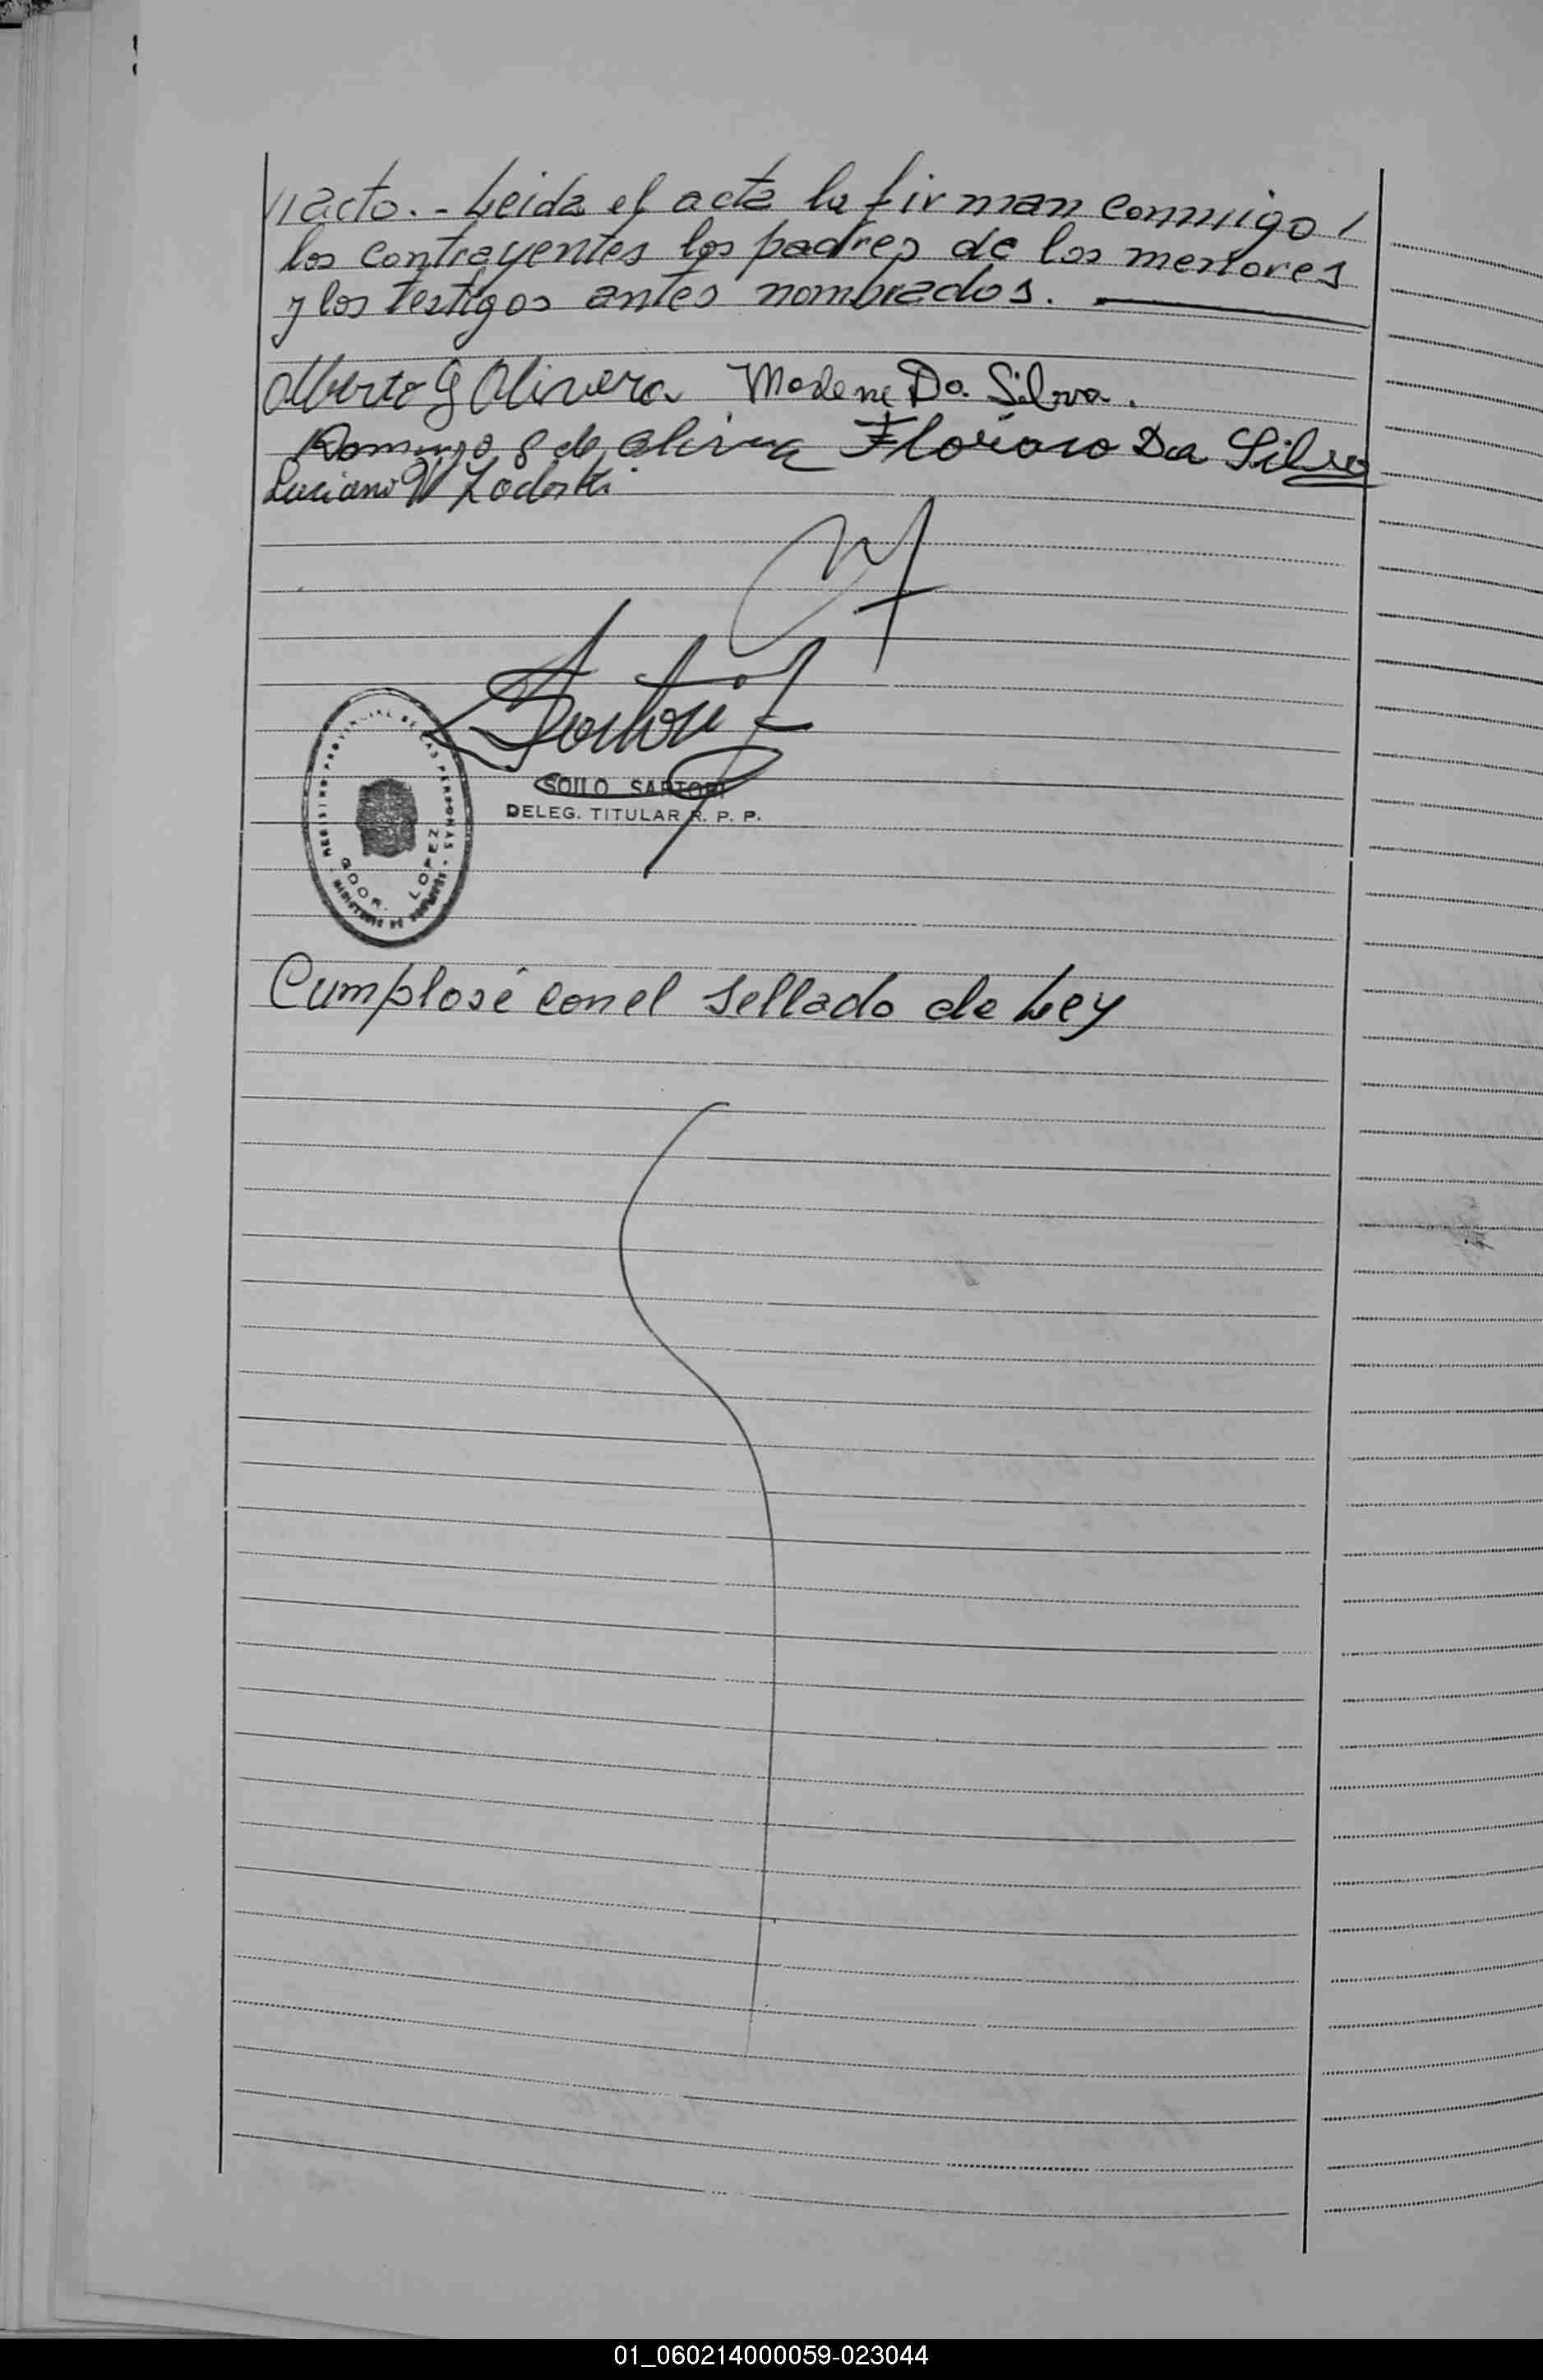 //acto. - Leida el acta la firman conmigo /
los contrayentes los padres de los menores
y los testigos antes nombrados.
Alberto G Olivera Madene Da. Silva.
Domingo de Floriano Da Silva
Luciano W
Sartori
SOILO SARTORI
DELEG. TITULAR R. P. P.
REGISTRO PROVINCIAL DE LAS PERSONAS
GDOR. LOPEZ
Cumplosé con el sellado de Ley
01_060214000059-023044